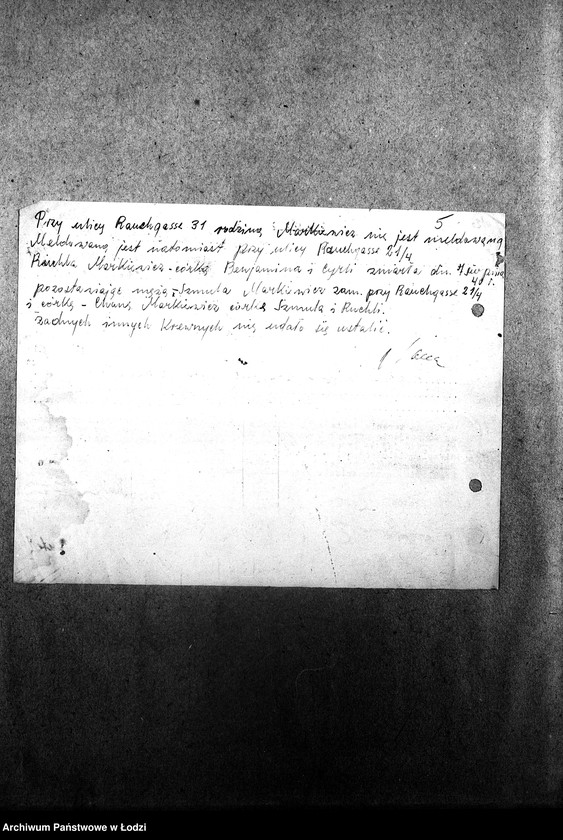 5
Przy ulicy Rauchgasse 31 rodzina Markiewicz nie jest meldowana
Meldowaną jest natomiast przy ulicy Rauchgasse 21/4
Ruchla Markiewicz - córka Benjamina i Cyrli zmarła dn. 4
pozostawiając męża - Szmula Markiewicz zam. przy Rauchgasse 21/4
i córkę - Chana Markiewicz córka Szmula i Ruchli.
Żadnych innych krewnych nie udało się ustalić.
Archiwum Państwowe w Łodzi